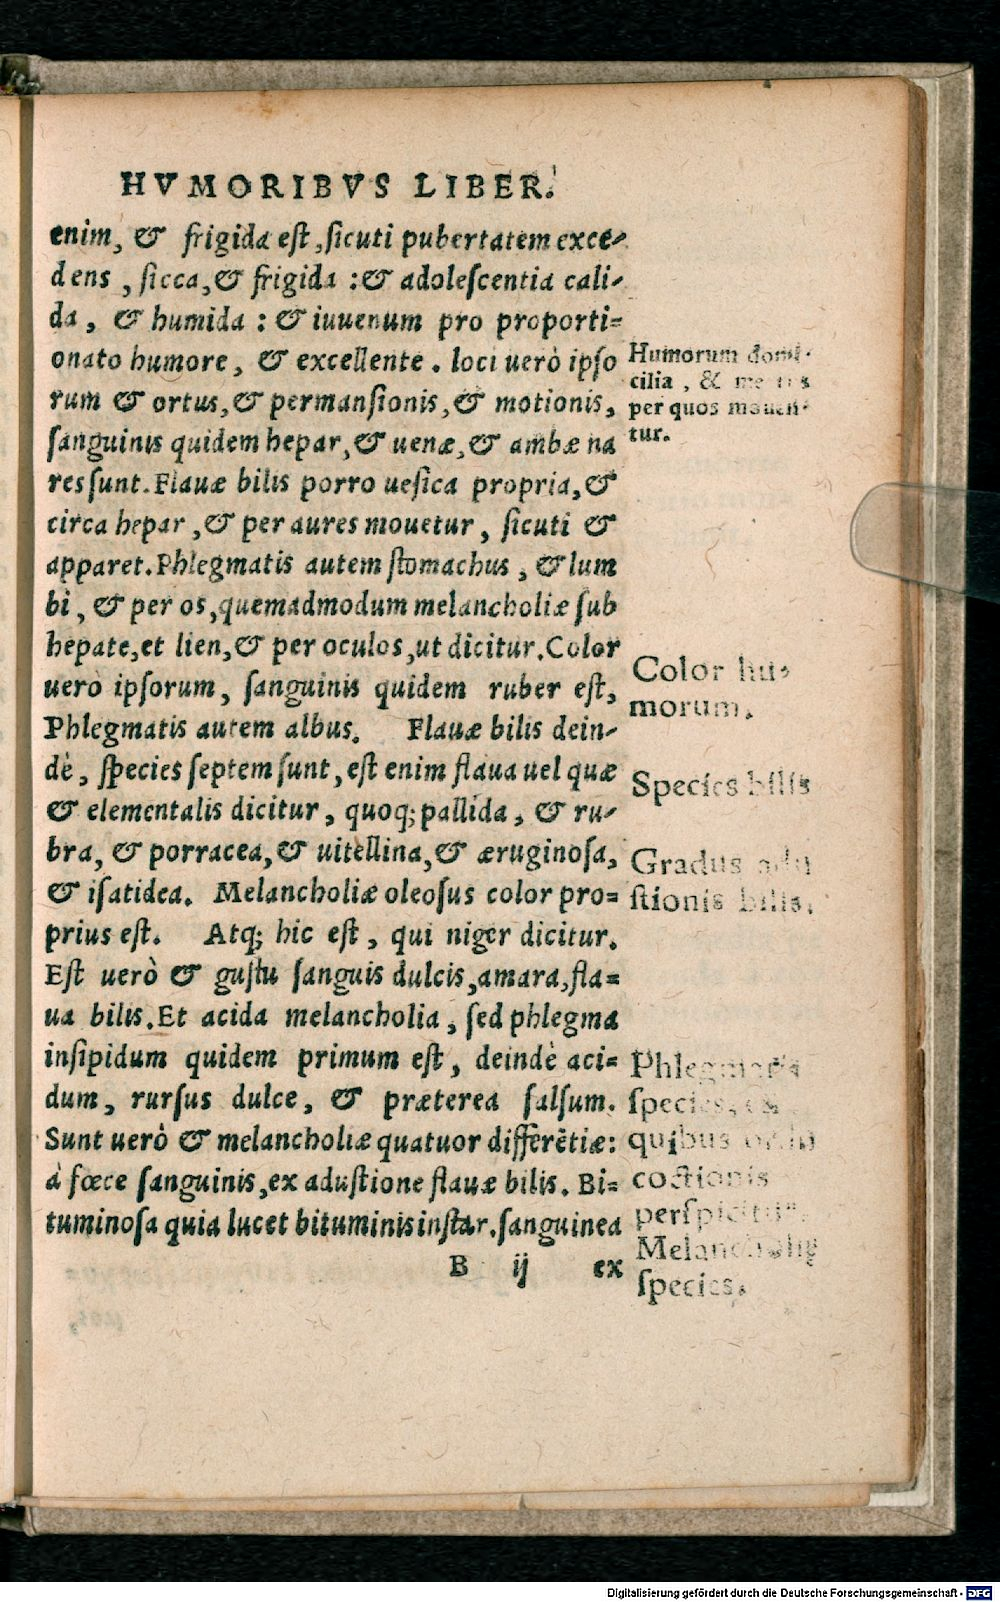 HVMORIBVS LIBER.
enim, & frigida est, sicuti pubertatem exce-
dens, sicca, & frigida : & adolescentia cali-
da, & humida : & iuuenum pro proporti-
onato humore, & excellente. loci uerò ipso
rum & ortus, & permansionis, & motionis,
sanguinis quidem hepar, & uenæ, & ambæ na
res sunt. Flauæ bilis porro uesica propria, &
circa hepar, & per aures mouetur, sicuti &
apparet. Phlegmatis autem stomachus, & lum
bi, & per os, quemadmodum melancholiæ sub
hepate, et lien, & per oculos, ut dicitur. Color
uerò ipsorum, sanguinis quidem ruber est,
Phlegmatis autem albus. Flauæ bilis dein-
dè, species septem sunt, est enim flaua uel quæ
& elementalis dicitur, quoq; pallida, & ru-
bra, & porracea, & uitellina, & æruginosa,
& isatidea. Melancholiæ oleosus color pro=
prius est. Atq; hic est, qui niger dicitur.
Est uerò & gustu sanguis dulcis, amara, fla=
ua bilis. Et acida melancholia, sed phlegma
insipidum quidem primum est, deindè aci=
dum, rursus dulce, & præterea salsum.
Sunt uerò & melancholiæ quatuor differētiæ:
à fœce sanguinis, ex adustione flauæ bilis. Bi=
tuminosa quia lucet bituminis instar. sanguinea
B ij ex
Humorum domi-
cilia, &
per quos mouen-
tur.
Color hu-
morum.
Species bilis
Gradus adu
stionis bilis.
Phlegmatis
species,
quibus
coctionis
perspicitur.
Melancholię
species.
Digitalisierung gefördert durch die Deutsche Forschungsgemeinschaft - DFG